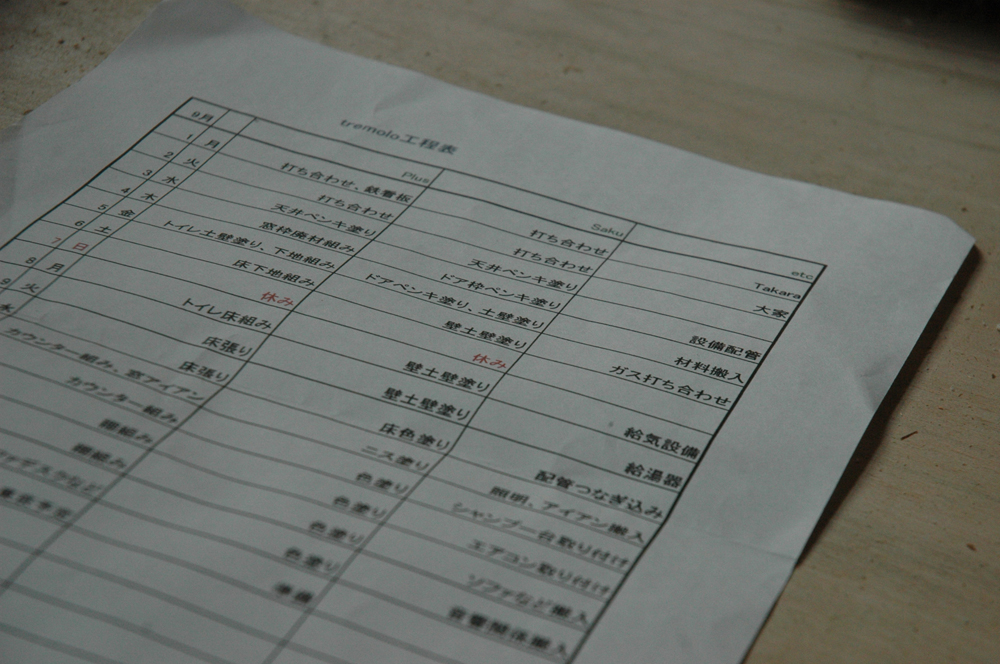 tremolo工程表
9月 Plus Saku etc
1 月 打ち合わせ、鉄看板 打ち合わせ Takara
2 火 打ち合わせ 打ち合わせ 大家
3 水 天井ペンキ塗り 天井ペンキ塗り
4 木 窓枠廃材組み ドア枠ペンキ塗り 設備配管
5 金 トイレ土壁塗り、下地組み ドアペンキ塗り、土壁塗り 材料搬入
6 土 床下地組み 壁土壁塗り ガス打ち合わせ
7 日 休み 休み
8 月 トイレ床組み 壁土壁塗り 給気設備
9 火 床張り 壁土壁塗り 給湯器
水 床張り 床色塗り 配管つなぎ込み
カウンター組み、窓アイアン ニス塗り 照明、アイアン搬入
カウンター組み 色塗り シャンプー台取り付け
棚組み 色塗り エアコン取り付け
棚組み 色塗り ソファなど搬入
色塗り 音響関係搬入
準備